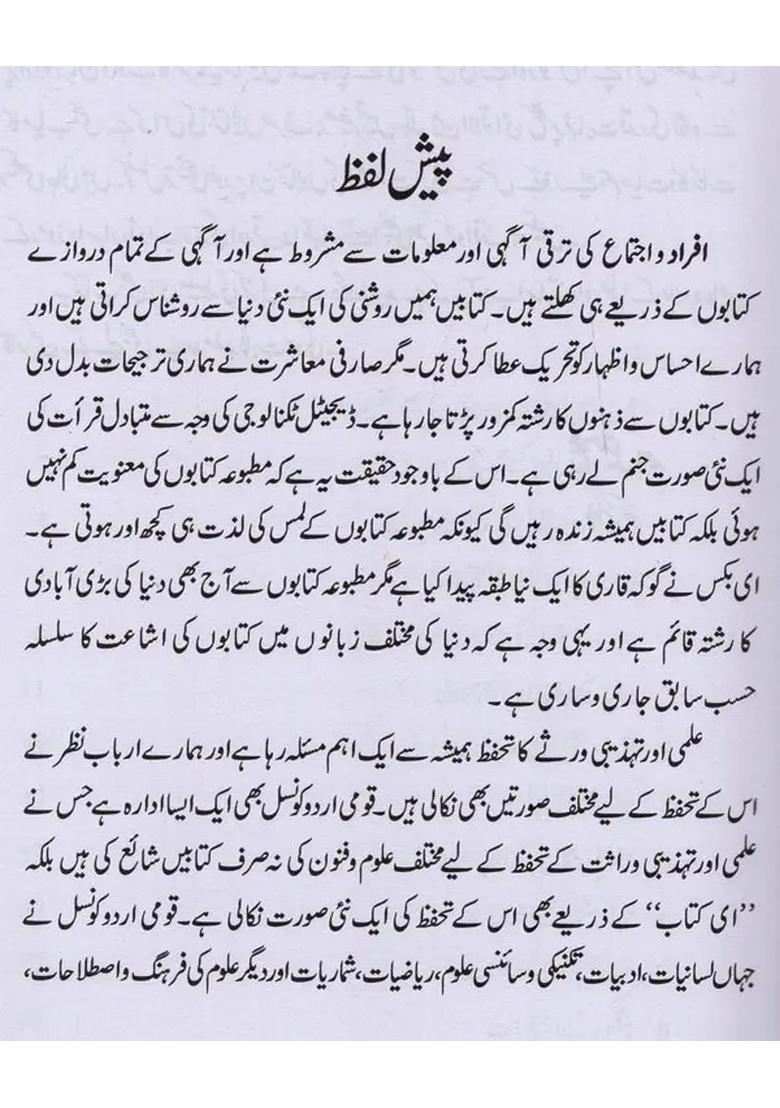 پیش لفظ
افراد و اجتماع کی ترقی آگہی اور معلومات سے مشروط ہے اور آگہی کے تمام دروازے
کتابوں کے ذریعے ہی کھلتے ہیں۔ کتابیں ہمیں روشنی کی ایک نئی دنیا سے روشناس کراتی ہیں اور
ہمارے احساس و اظہار کو تحریک عطا کرتی ہیں۔ مگر صارفی معاشرت نے ہماری ترجیحات بدل دی
ہیں۔ کتابوں سے ذہنوں کا رشتہ کمزور پڑتا جا رہا ہے۔ ڈیجیٹل ٹکنالوجی کی وجہ سے متبادل قرأت کی
ایک نئی صورت جنم لے رہی ہے۔ اس کے باوجود حقیقت یہ ہے کہ مطبوعہ کتابوں کی معنویت کم نہیں
ہوئی بلکہ کتابیں ہمیشہ زندہ رہیں گی کیونکہ مطبوعہ کتابوں کے لمس کی لذت ہی کچھ اور ہوتی ہے۔
ای بکس نے گو کہ قاری کا ایک نیا طبقہ پیدا کیا ہے مگر مطبوعہ کتابوں سے آج بھی دنیا کی بڑی آبادی
کا رشتہ قائم ہے اور یہی وجہ ہے کہ دنیا کی مختلف زبانوں میں کتابوں کی اشاعت کا سلسلہ
حسب سابق جاری و ساری ہے۔
علمی اور تہذیبی ورثے کا تحفظ ہمیشہ سے ایک اہم مسئلہ رہا ہے اور ہمارے ارباب نظر نے
اس کے تحفظ کے لیے مختلف صورتیں بھی نکالی ہیں۔ قومی اردو کونسل بھی ایک ایسا ادارہ ہے جس نے
علمی اور تہذیبی وراثت کے تحفظ کے لیے مختلف علوم و فنون کی نہ صرف کتابیں شائع کی ہیں بلکہ
”ای کتاب“ کے ذریعے بھی اس کے تحفظ کی ایک نئی صورت نکالی ہے۔ قومی اردو کونسل نے
جہاں لسانیات، ادبیات، تکنیکی و سائنسی علوم، ریاضیات، شماریات اور دیگر علوم کی فرہنگ و اصطلاحات،